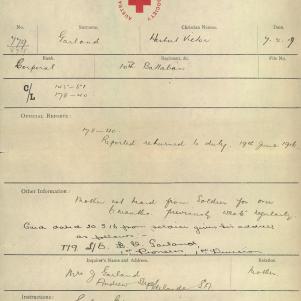 AUSTRA
SOCIETY
No. Surname. Christian Names.
779 Garland Herbert Victor 7.2.19
Rank. Regiment, &c. File No.
Corporal 10th Battalion
C/L 145-51
178-40
OFFICIAL REPORTS:
178-40.
Reported returned to duty, 19th June 1916
Other Information:
Mother not heard from Soldier for over
6 months. previously wrote regularly.
dated 30.5.16 from given his address
as follows -
779 H. V. Garland,
1st Pioneers, 1st Division
Inquirer's Name and Address. Relation.
Mrs J Garland Mother
Andrew Adelaide S.A.
Instructions: